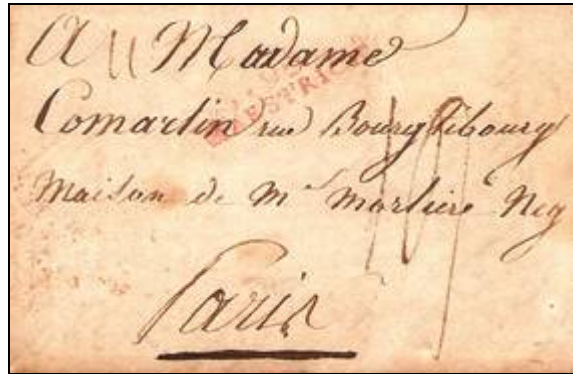 A Madame
MAESTRICHT
Comartin rue Bourg tibourg
Maison de Mr morliere Neg
Paris